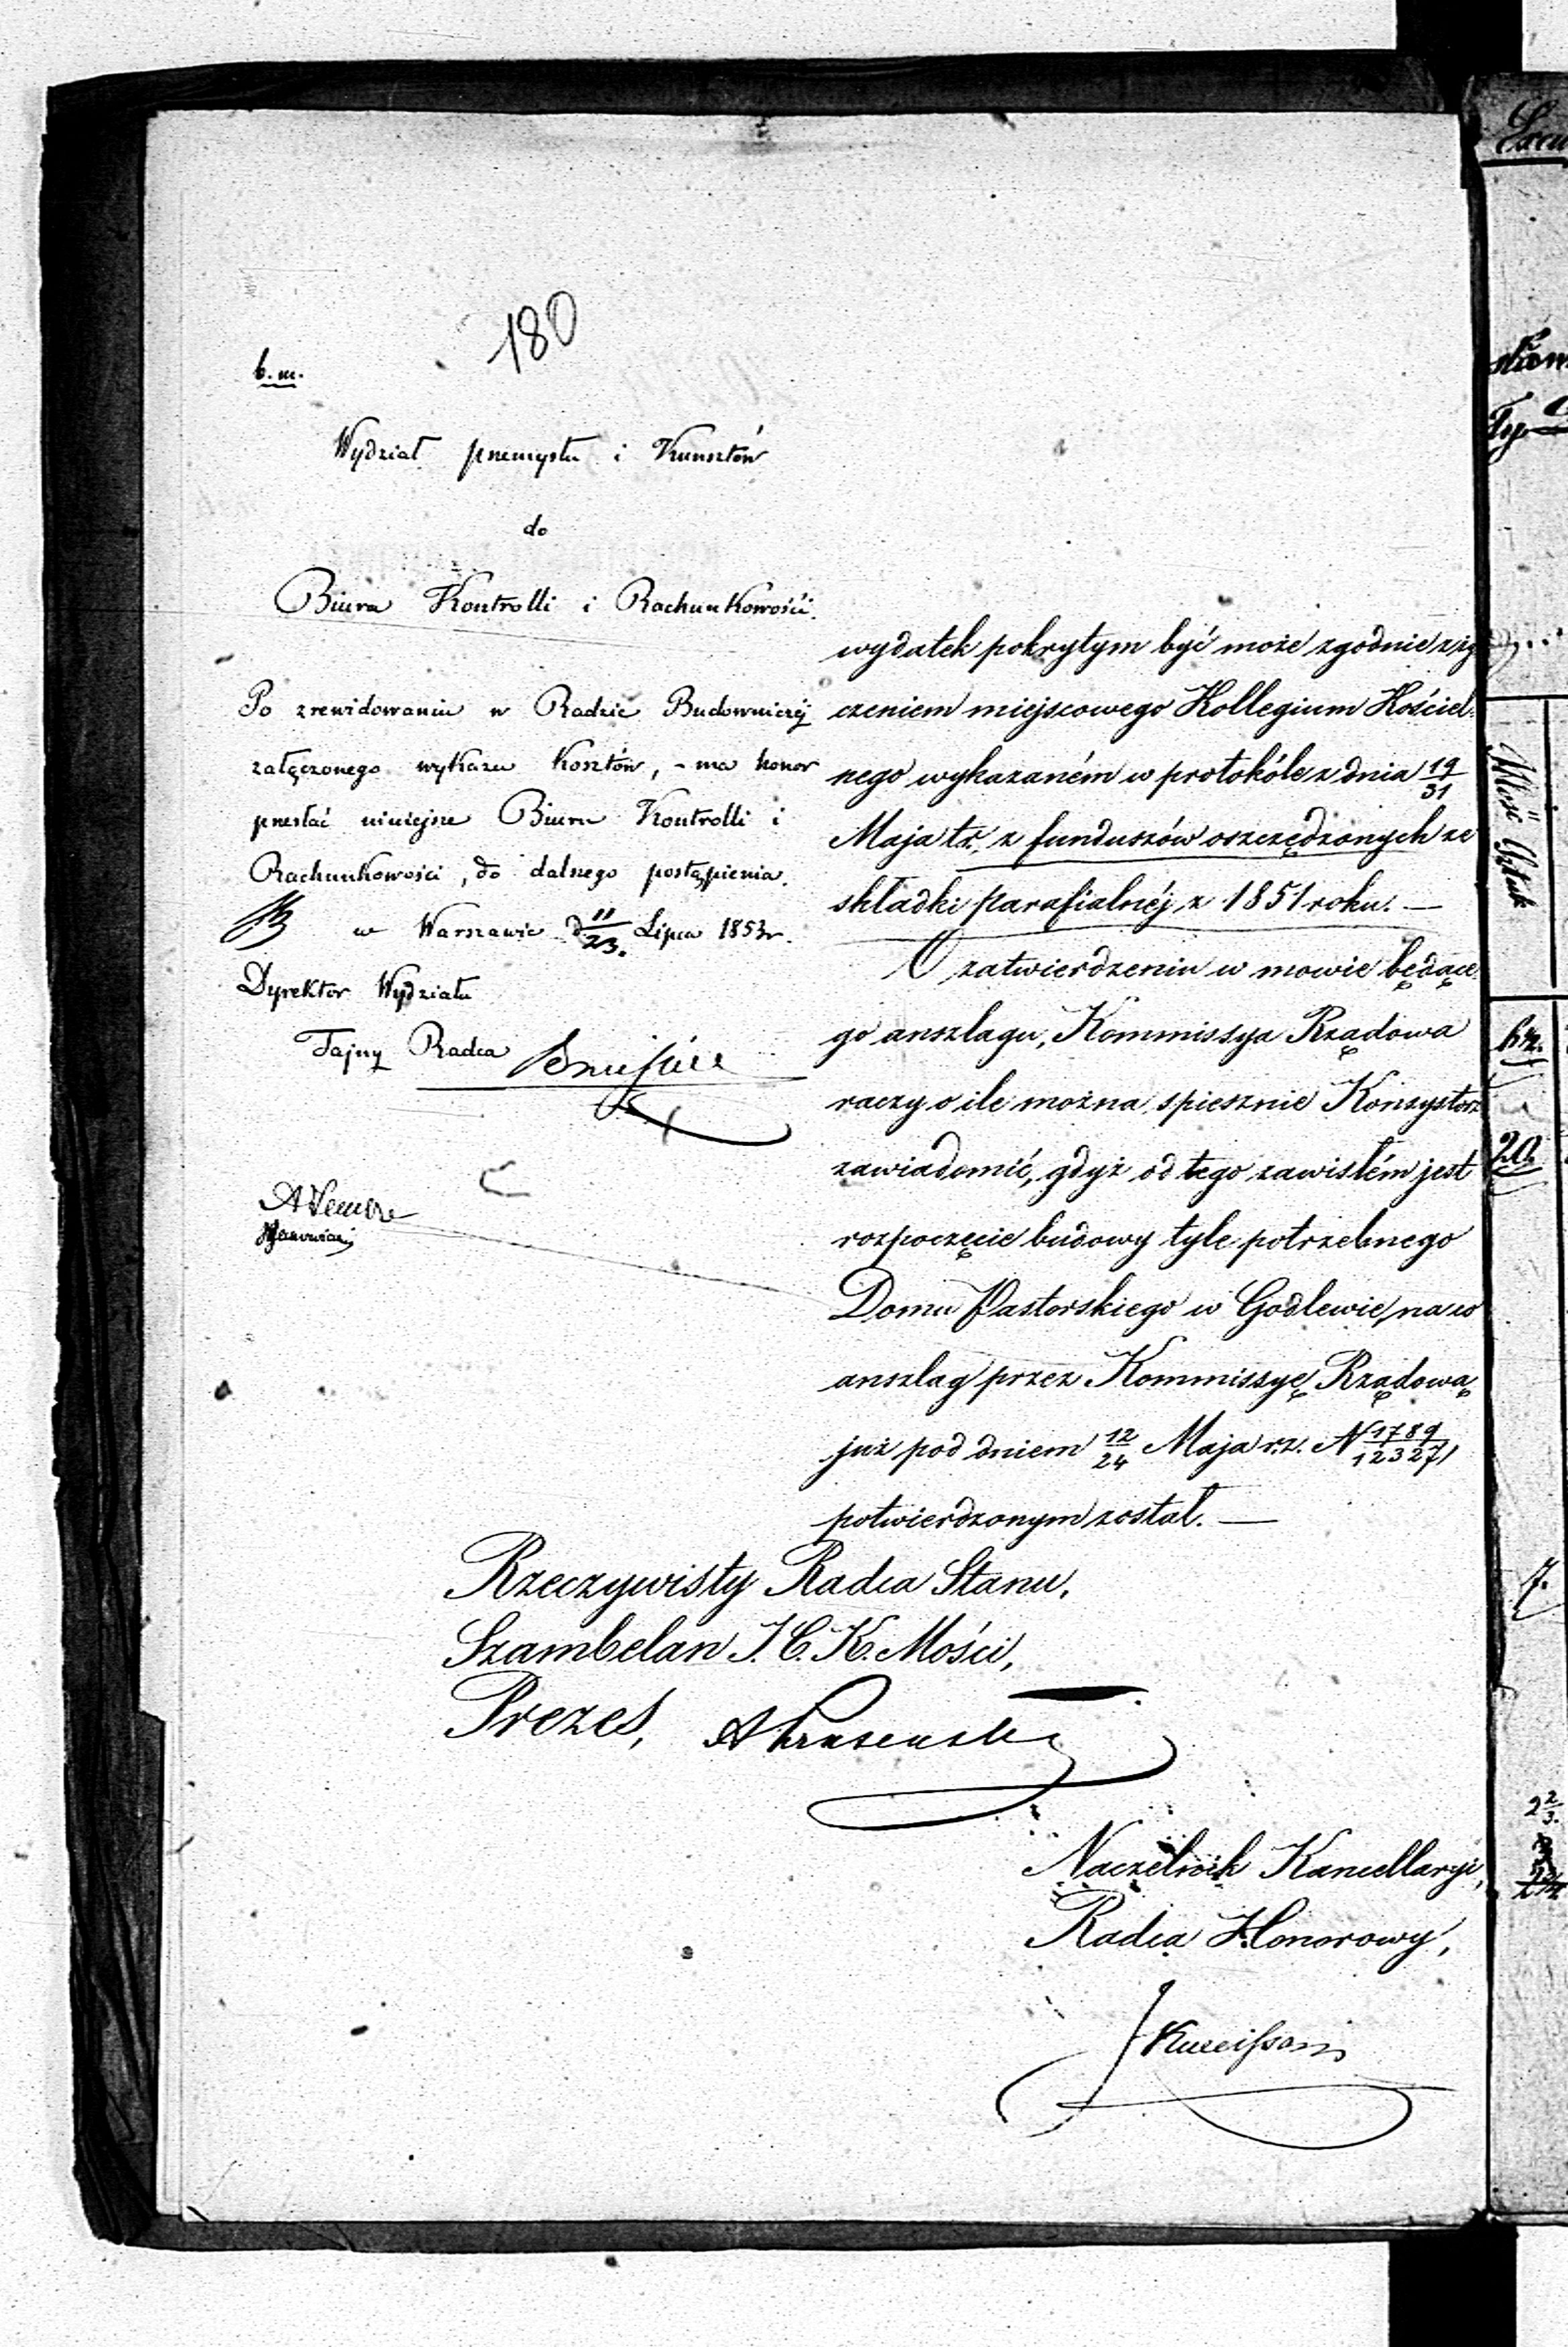 180
b. m.
Wydział przemysłu i Kunsztów
do
Biura Kontrolli i Rachunkowości.
Po zrewidowaniu w Radzie Budowniczéj
załączonego wykazu kosztów, – ma honor
przesłać niniejsze Biuru Kontrolli i
Rachunkowości, do dalszego postąpienia.
w Warszawie d. 11/23. Lipca 1853 r.
Dyrektor Wydziału
Tajny Radca
wydatek pokrytym być może zgodnie z ży
czeniem miejscowego Kollegium Kościel-
nego wykazaném w protokóle z dnia 19/31
Maja t.r., z funduszów oszczędzonych ze
składki parafialnéj z 1851 roku. —
O zatwierdzeniu w mowie będące
go anszlagu, Kommissya Rządowa
raczy o ile można spiesznie Konsystorz
zawiadomić, gdyż od tego zawisłém jest
rozpoczęcie budowy tyle potrzebnego
Domu Pastorskiego w Godlewie, na co
anszlag przez Kommissyę Rządową
już pod dniem 12/24 Maja r.z. N 1789/12327,
potwierdzonym został. —
Rzeczywisty Radca Stanu,
Szambelan J. C. K. Mości,
Prezes,
Naczelnik Kancellaryi,
Radca Honorowy,
Ilość Sztuk
20.
7.
2 2/3.